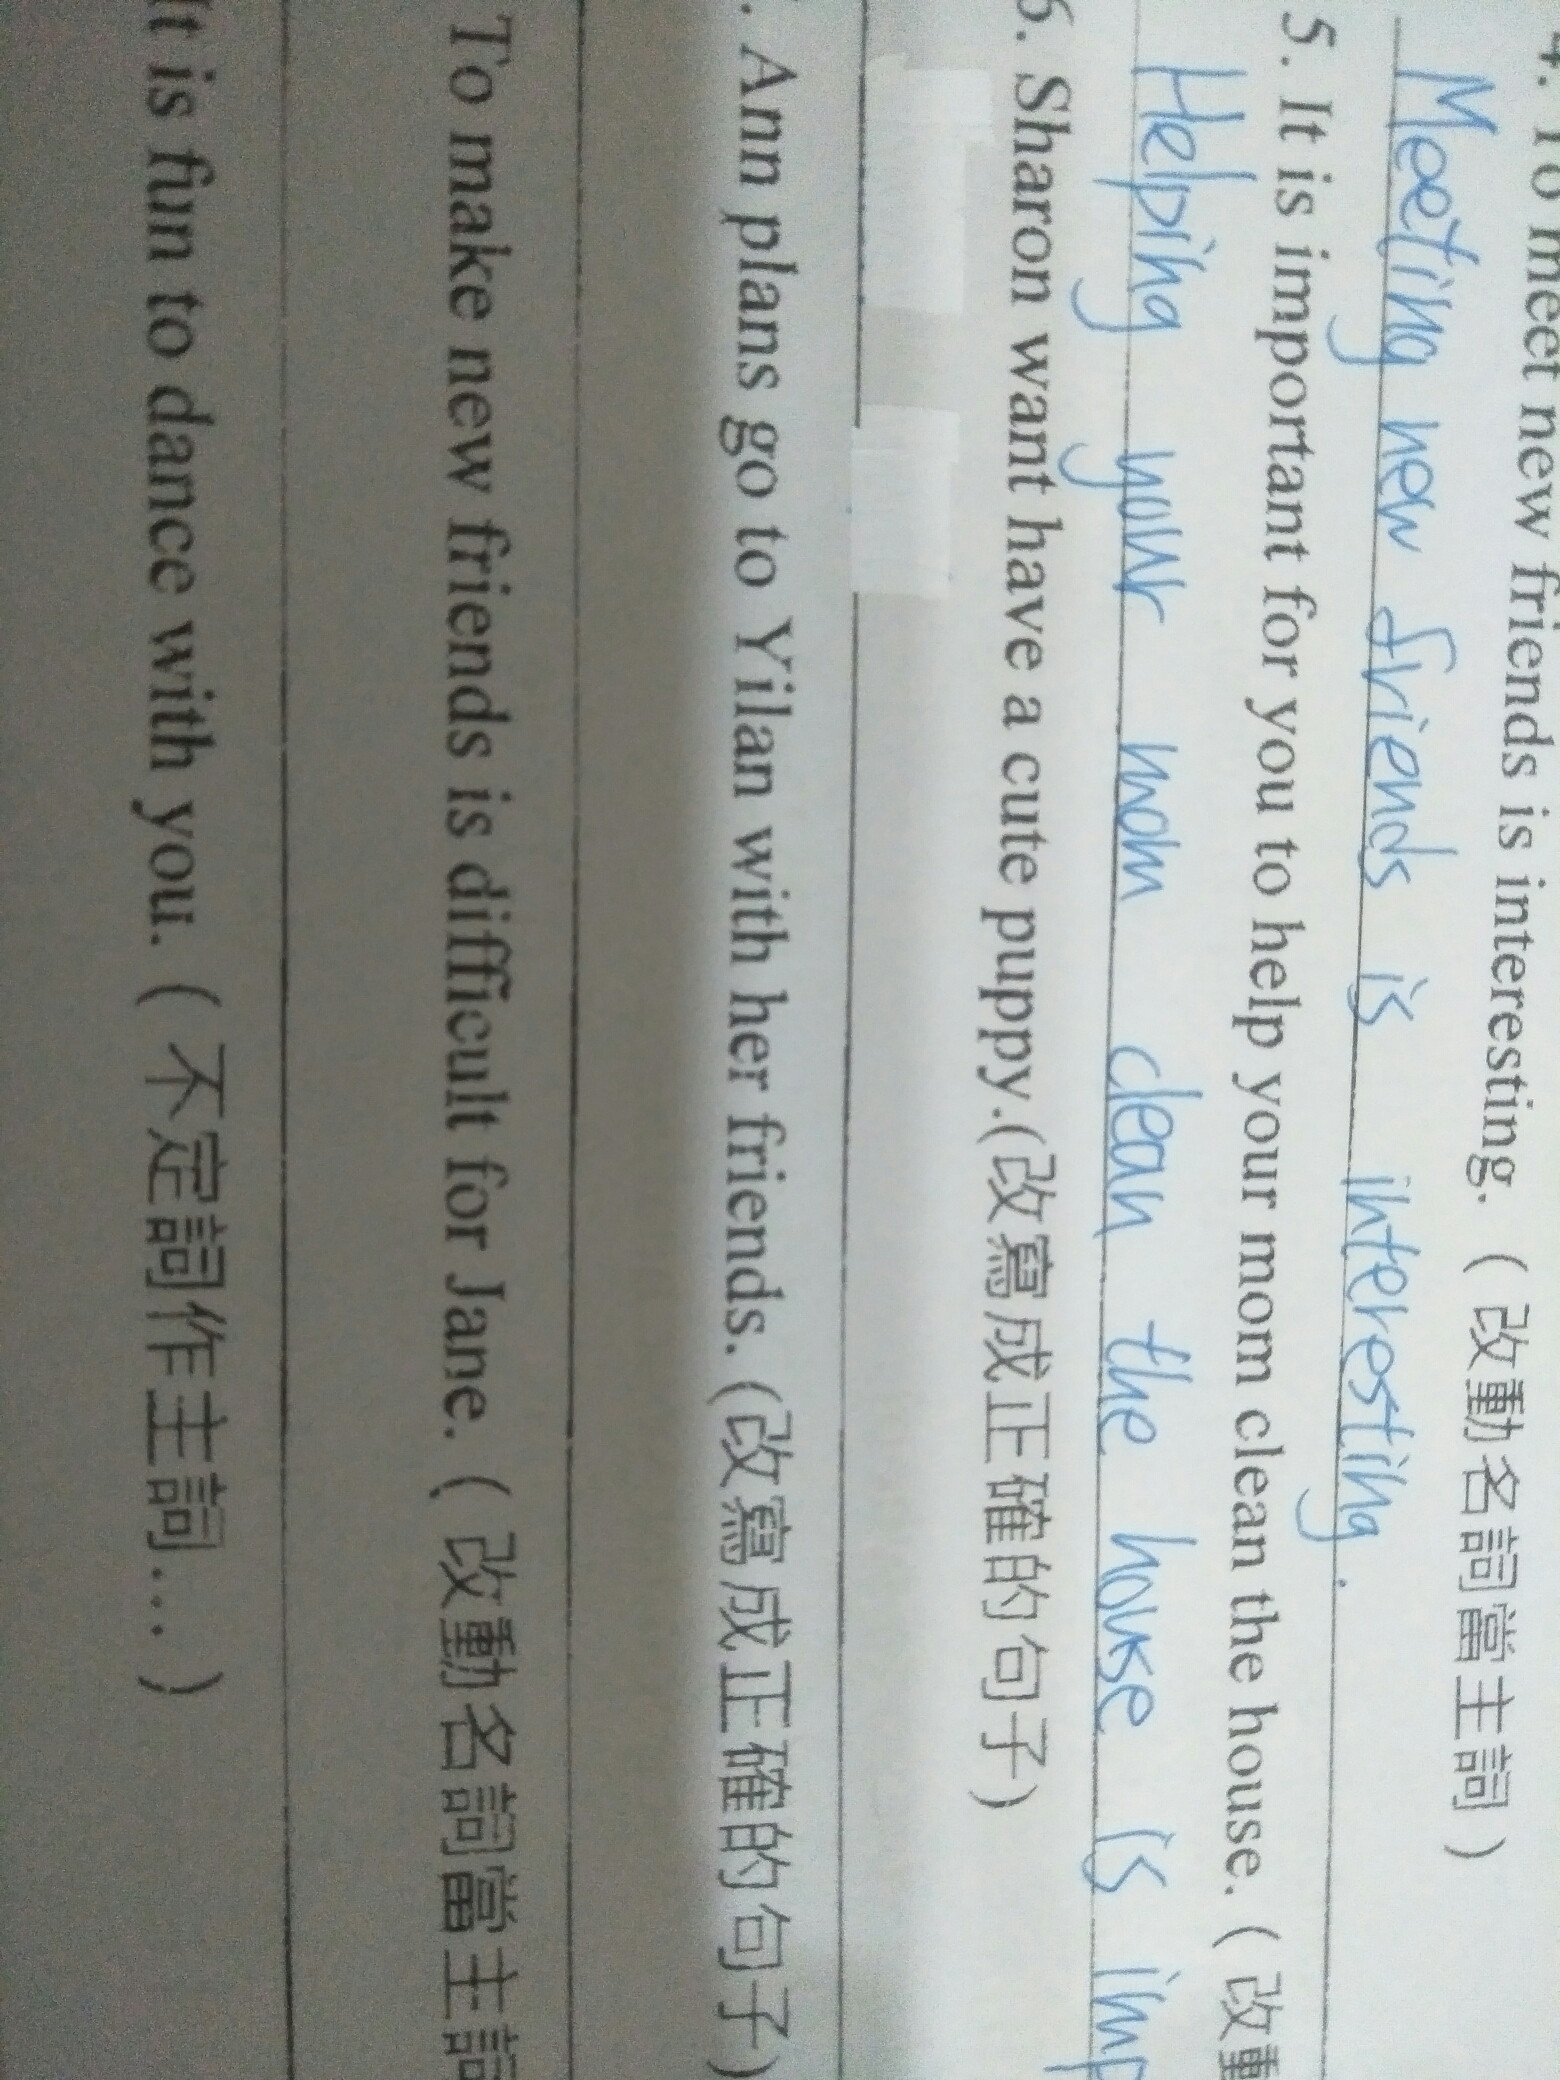 4. To meet new friends is interesting. ( 改動名詞當主詞 )
Meeting new friends is interesting.
5. It is important for you to help your mom clean the house. ( 改動
Helping your mom clean the house is imp
6. Sharon want have a cute puppy.(改寫成正確的句子)
. Ann plans go to Yilan with her friends. (改寫成正確的句子)
To make new friends is difficult for Jane. ( 改動名詞當主詞
It is fun to dance with you. ( 不定詞作主詞… )